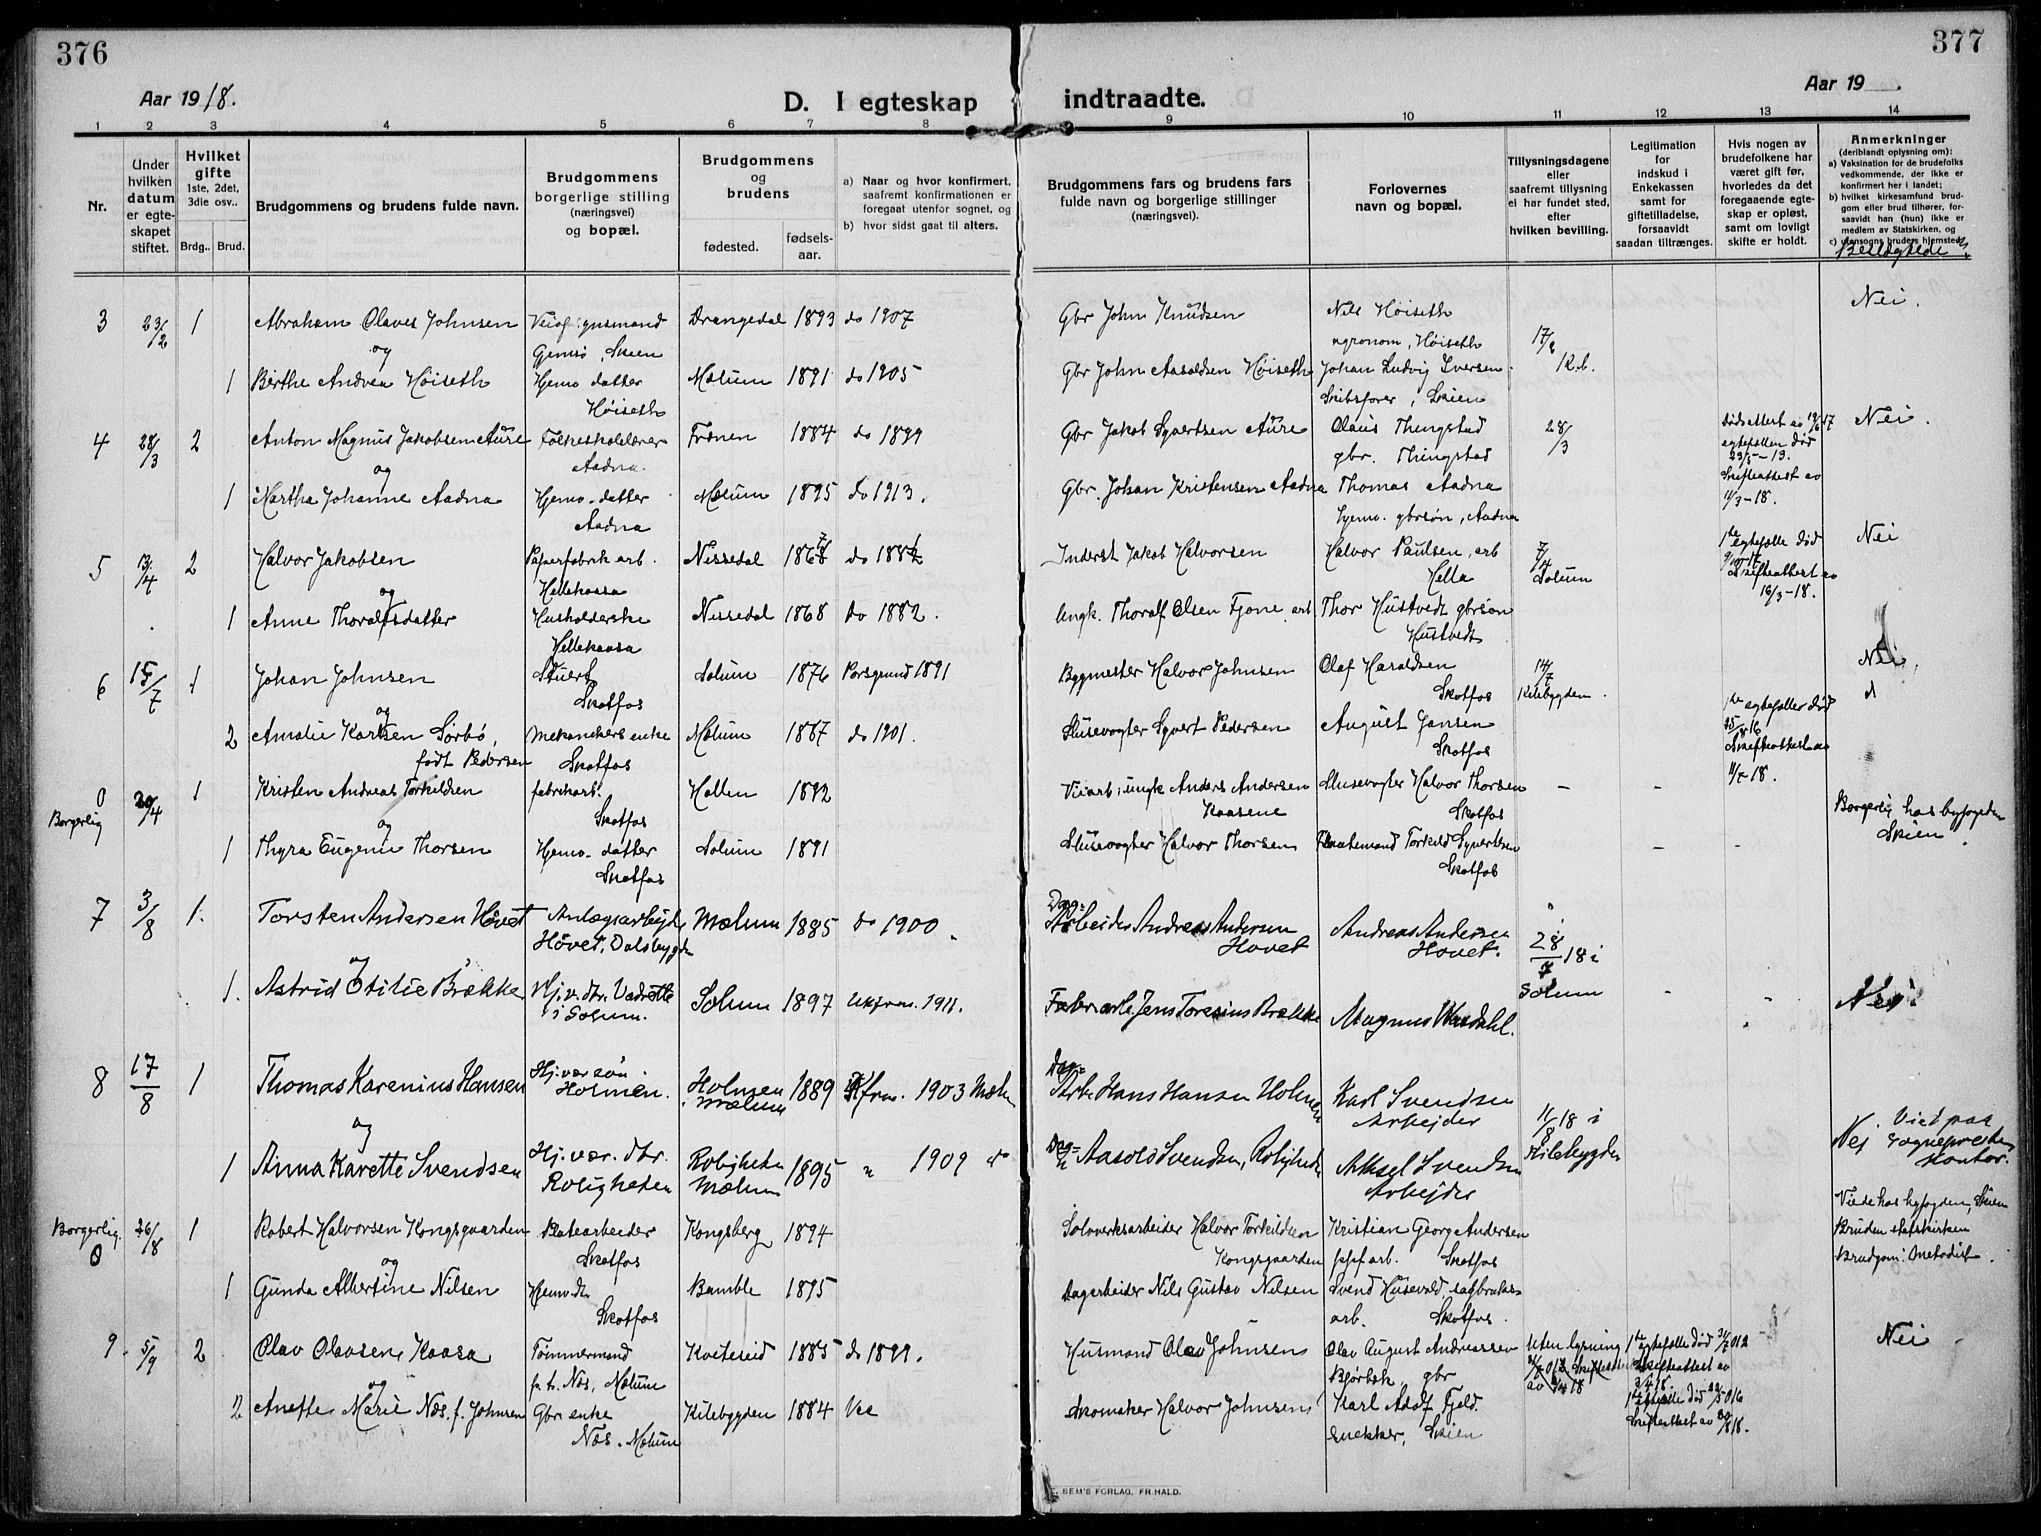 376
377
Aar 1918.
D. I egteskap indtraadte.
Aar 19 .
1 2 3 4 5 6 7 8 9 10 11 12 13 14
Nr.
Under hvilken datum er egteskapet stiftet.
Hvilket gifte 1ste, 2det, 3die osv..
Brdg.. Brud.
Brudgommens og brudens fulde navn.
Brudgommens borgerlige stilling (næringsvei) og bopæl.
Brudgommens og brudens
fødested. fødselsaar.
a) Naar og hvor konfirmert, saafremt konfirmationen er foregaat utenfor sognet, og
b) hvor sidst gaat til alters.
Brudgommens fars og brudens fars fulde navn og borgerlige stillinger (næringsvei).
Forlovernes navn og bopæl.
Tillysningsdagene eller saafremt tillysning ei har fundet sted, efter hvilken bevilling.
Legitimation for indskud i Enkekassen samt for giftetilladelse, forsaavidt saadan tiltrænges.
Hvis nogen av brudefolkene har været gift før, hvorledes da det foregaaende egteskap er opløst, samt om lovligt skifte er holdt.
Anmerkninger (deriblandt oplysning om):
a) Vaksination for de brudefolks vedkommende, der ikke er konfirmert her i landet;
b) hvilket kirkesamfund brudgom eller brud tilhører, forsaavidt han (hun) ikke er medlem av Statskirken, og
c) utensogns bruders hjemsted.
Beslegtede
3 23/2 1 Abraham Olaves Johnsen Drangedal 1893 do 1907 Gbr John Knudsen Nils Høiseth Nei.
og Gjemsø, Skien agronom, Høiseth 17/2
1 Birthe Andrea Høiseth Hjemv datter Mælum 1891 do 1905 Gbr John Aasoldsen Høiseth Johan Ludvig Iversen K.b.
Høiseth Skibsfører, Skien
4 28/3 2 Anton Magnus Jakobsen Aure Folkeskolelærer Frænen 1884 do 1899 Gbr Jakob Syvertsen Aure Olaus Thingstad 28/3 Dødsattest av Nei.
og Aadna. gbr. Thingstad egtefællen død
1 Martha Johanne Aadna Hjemv. datter Mælum 1895 do 1913. Gbr. Johan Kristensen Aadna Thomas Aadna Skifteattest av
Aadna hjemv. gbrsøn, Aadna 11/3-18.
5 13/4 2 Halvor Jakobsen Papirfabrik arb. Nissedal do Inderst Jakob Halvorsen Halvor Paulsen, arb 7/4 1ste egtefælle død Nei
og Hellekaasa Hella Solum Skifteattest av
1 Anne Thoralfsdatter Husholderske Nissedal 1868 do 1882. Ungk. Thoralf Olsen Fjone arb Thor Hustvedt gbrsøn 16/3-18.
Hellekaasa Hustvedt
6 15/7 1 Johan Johnsen Stuert Solum 1876 Porsgrund 1891 Bygmester Halvor Johnsen Olaf Haraldsen 14/7 Nei.
og Skotfos Skotfos Kilebygden.
2 Amalie Karlsen Sørbø, Mekanikers enke Mælum do 1901. Slusevogter Syvert Pedersen August Jansen 1ste egtefælle død
født Pedersen Skotfos Skotfos Skifteattest av
0 20/4 1 Kristen Andreas Torkildsen fabrikarb. Hollen 1892 Veiarb, ungk Anders Andersen Slusevogter Halvor Thorsen – - 11/7-18.
Borgerlig og Skotfos Kaasene Skotfos Borgerlig hos byfogden
1 Thyra Eugenie Thorsen Hjemv. datter Solum 1891 Slusevogter Halvor Thorsen Torkild Syvertsen - - Skien.
Skotfos Skotfos
7 3/8 1. Torsten Andersen Hovet Anlægsarbejd. Mælum 1885 do 1900. Dag= Arbeider Andreas Andersen Andreas Andersen
og Hovet, Valebygden Hovet Hovet. 28/7 18 i
1. Astrid Otilie Brække Hj.v. dtr. Solum 1897 1911. Fabr.arb. Jens Toresius Brække Magnus Solum Nei.
i Solum.
8 17/8 1 Thomas Karenius Hansen Hj.vær. søn Holmen Kfrm. 1903 Mælum Dag= Arb. Hans Hansen Holmen Karl Svendsen
og Holmen. Mælum 1889 Arbejder 11/8 18 i Viet paa
1 Anna Karette Svendsen Hj.vær. dtr. Roligheten 1895 " 1909 do Dag= " Aasold Svendsen, Roligheden Aksel Svendsen Kilebygden Nej Sogneprestens
Roligheten Mælum Arbejder Kontor.
Borgerlig. 26/8 1 Robert Halvorsen Kongsgaarden Platearbeider Kongsberg 1894 Sølvverksarbeider Halvor Torkildsen Kristian Georg Andersen Viede hos byfogden, Skien
0 og Skotfos Kongsgaarden arb. Skotfos Bruden statskirken
1 Gunda Albertine Nilsen Hjemv. dtr Bamble 1895 Dagarbeider Nils Gustav Nilsen Svend Husevold, sagbruks= Brudgom: Metodist.
Skotfos arb. Skotfos.
9. 5/9 2 Olav Olavsen Kaasa Tømmermand Kviteseid 1885 do 1899. Husmand Olav Johnsen Olav August Andreassen Uten lysning 1ste egtefælle død Nei
og p.t. Næs, Mælum Bjørbæk, gbr Skifteattest av
2 Anette Marie Næs, f. Johnsen Gbr enke Kilebygden 1884 Skomaker Halvor Johnsen Karl Adolf Fjeld. 1ste egtefælle død
Næs. Mælum snekker, Skien Skifteattest av
SEM'S FORLAG, FR. HALD.